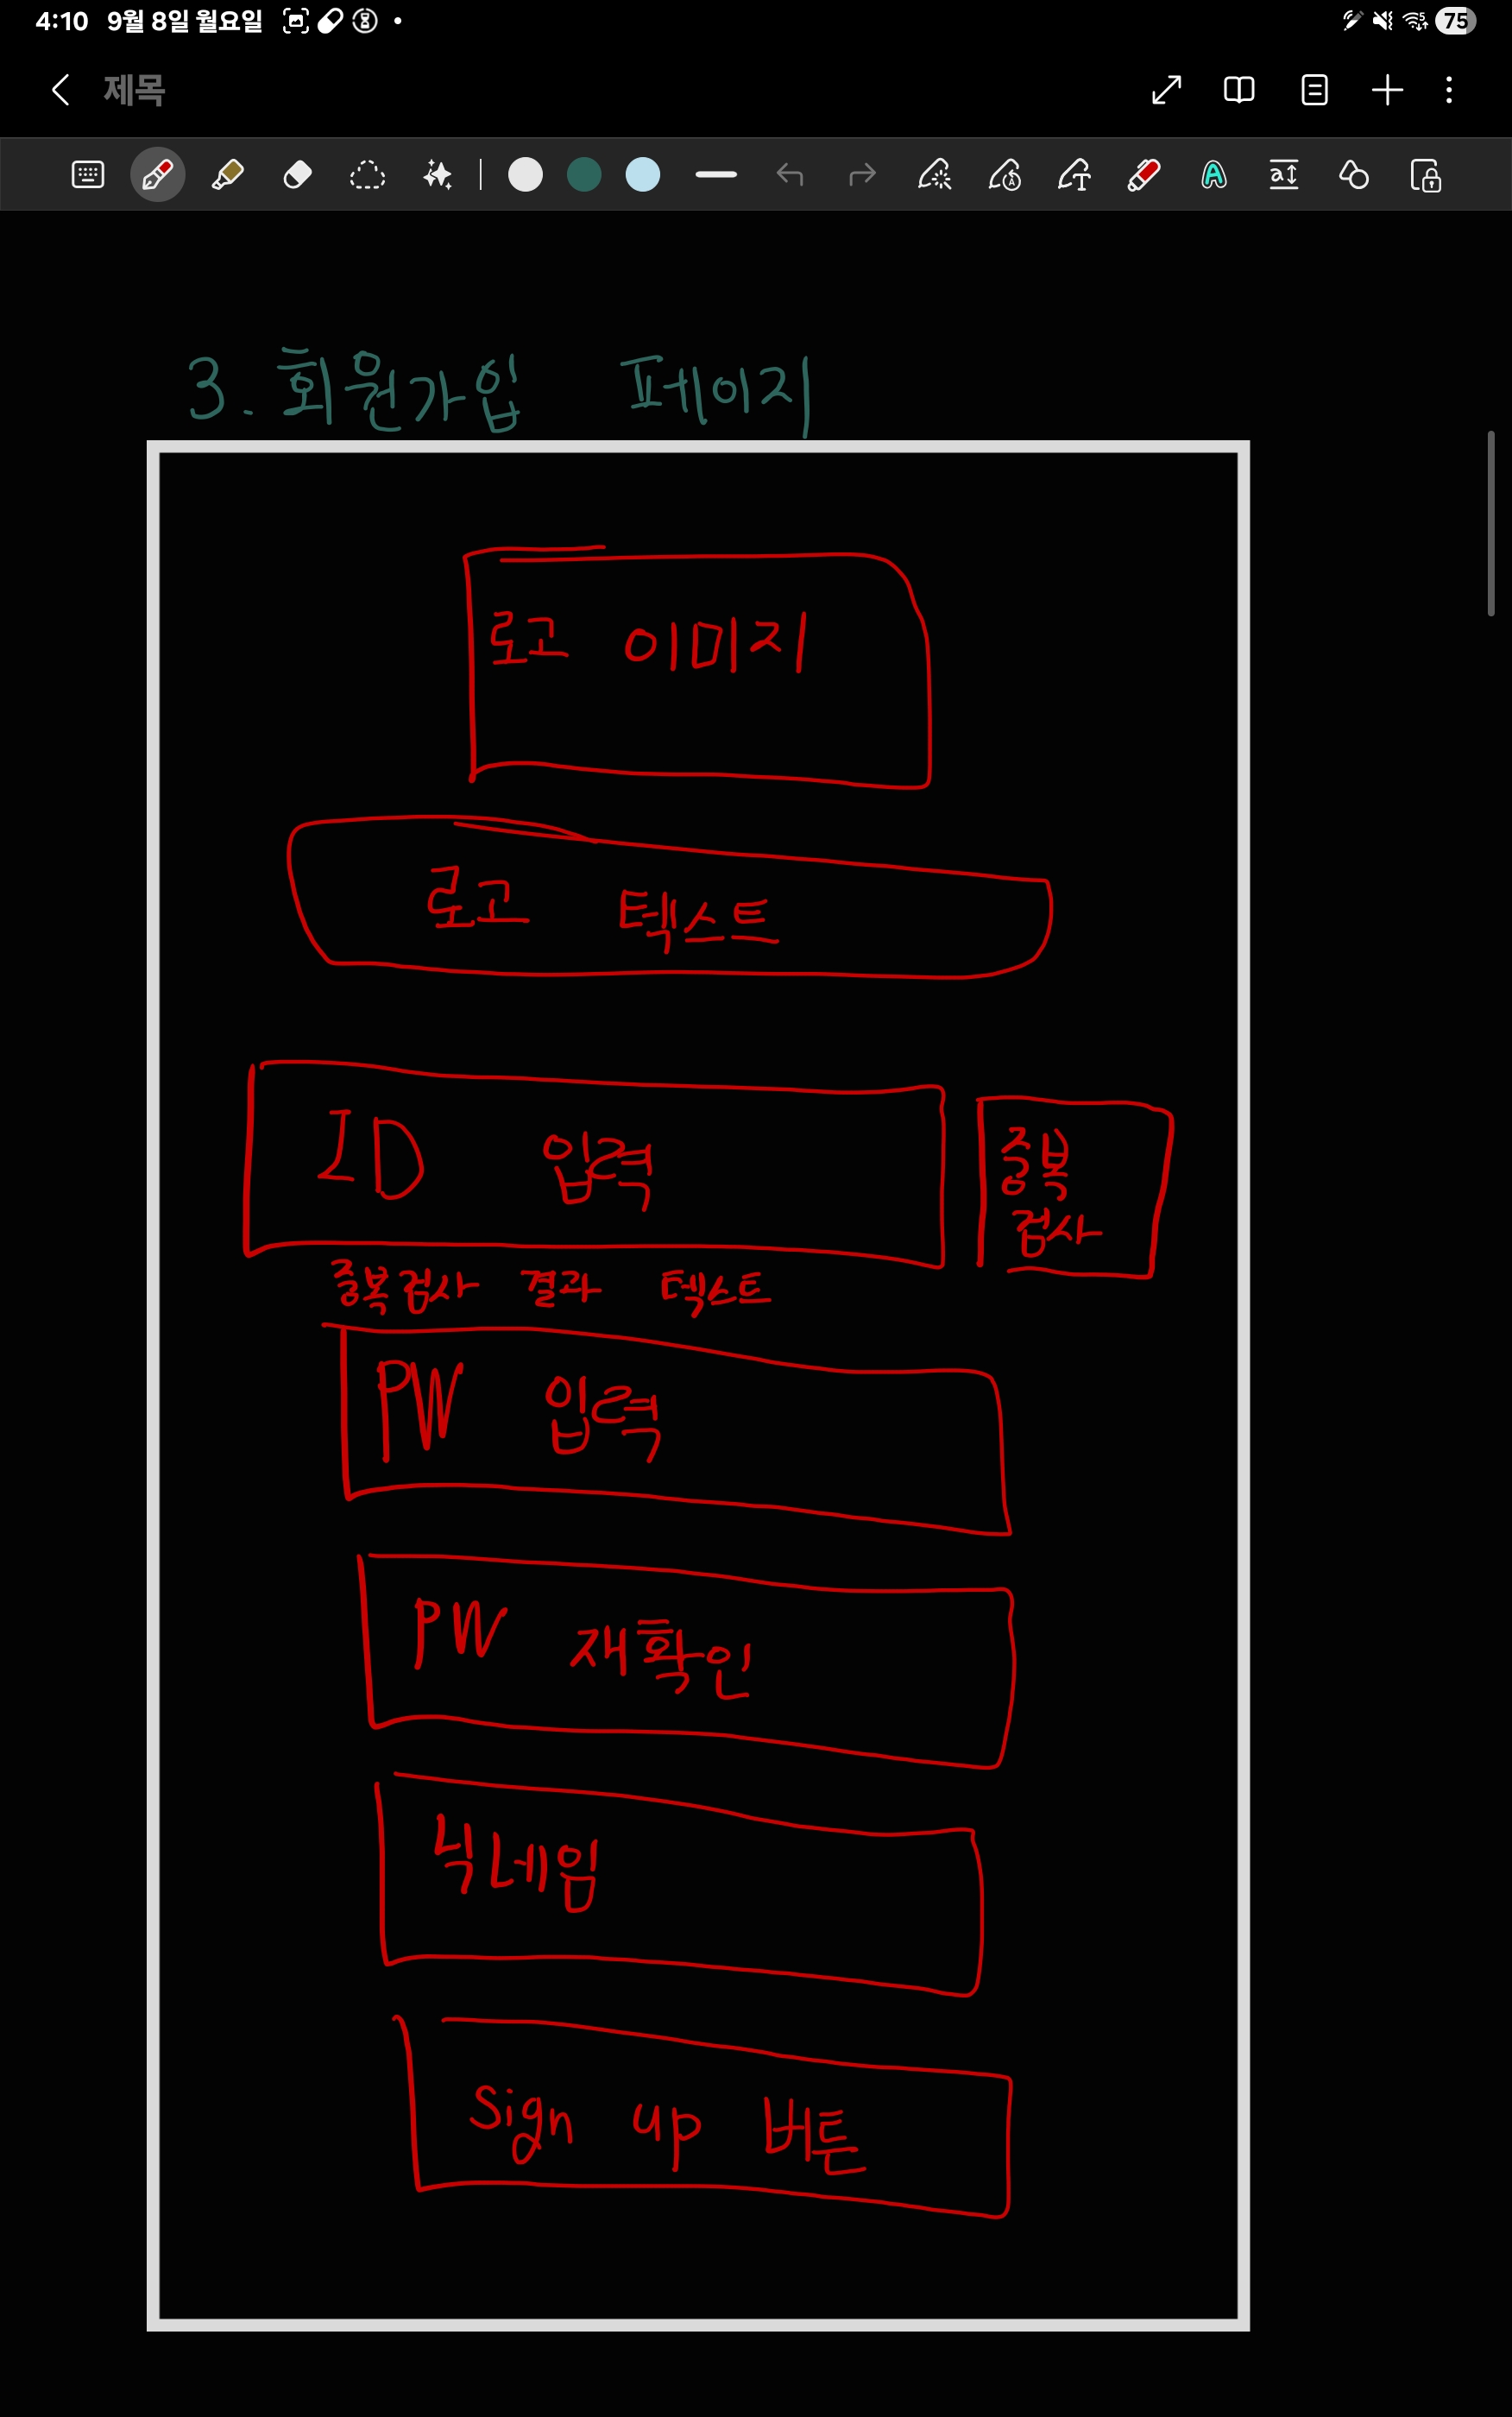 4:10 9월 8일 월요일
75
제목
3. 회원가입 페이지
로고 이미지
로고 텍스트
ID 입력
중복
검사
중복검사 결과 텍스트
PW 입력
PW 재확인
닉네임
Sign up 버튼